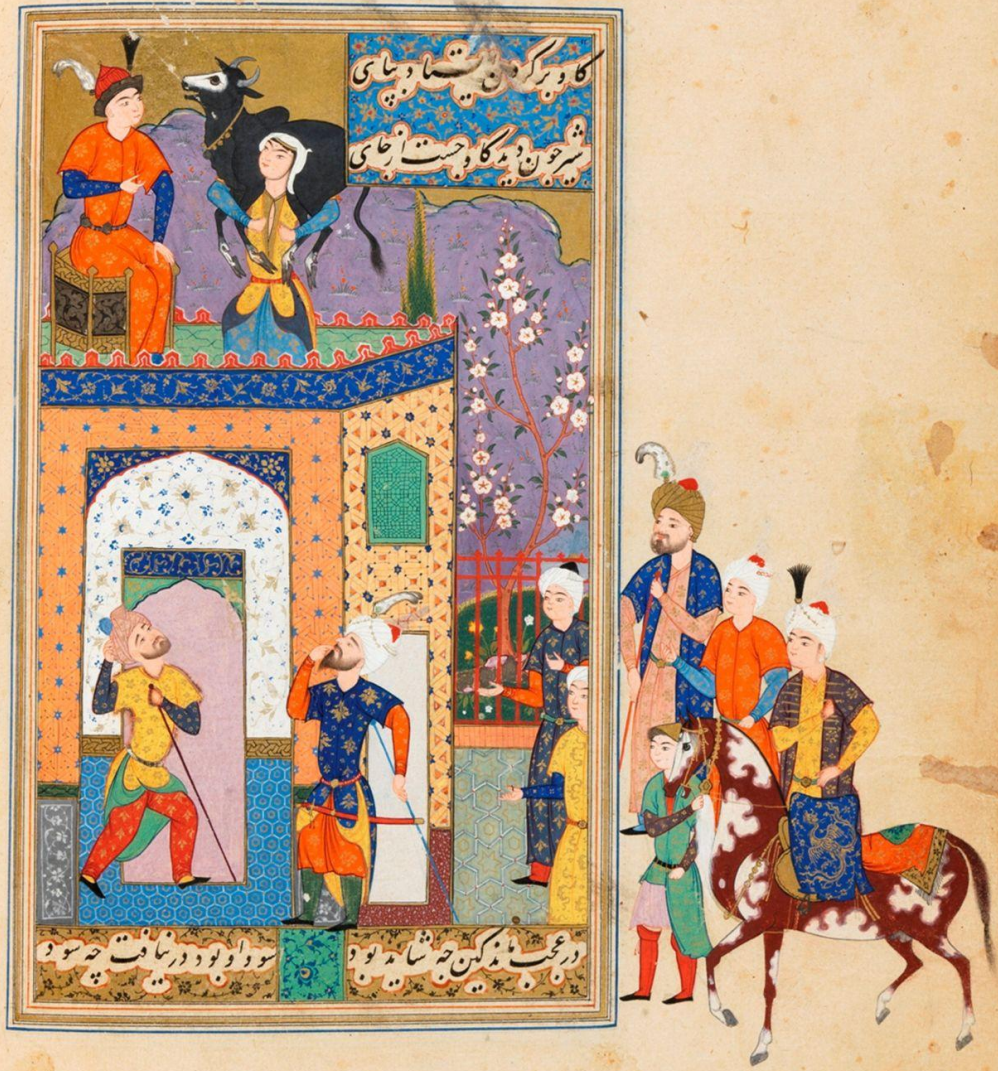 کاو برکردن ایستاد بپای
شیر چون دید کاو جست از جای
در عجب ماند کین چه شاید بود
سود او بود در نیافت چه سود